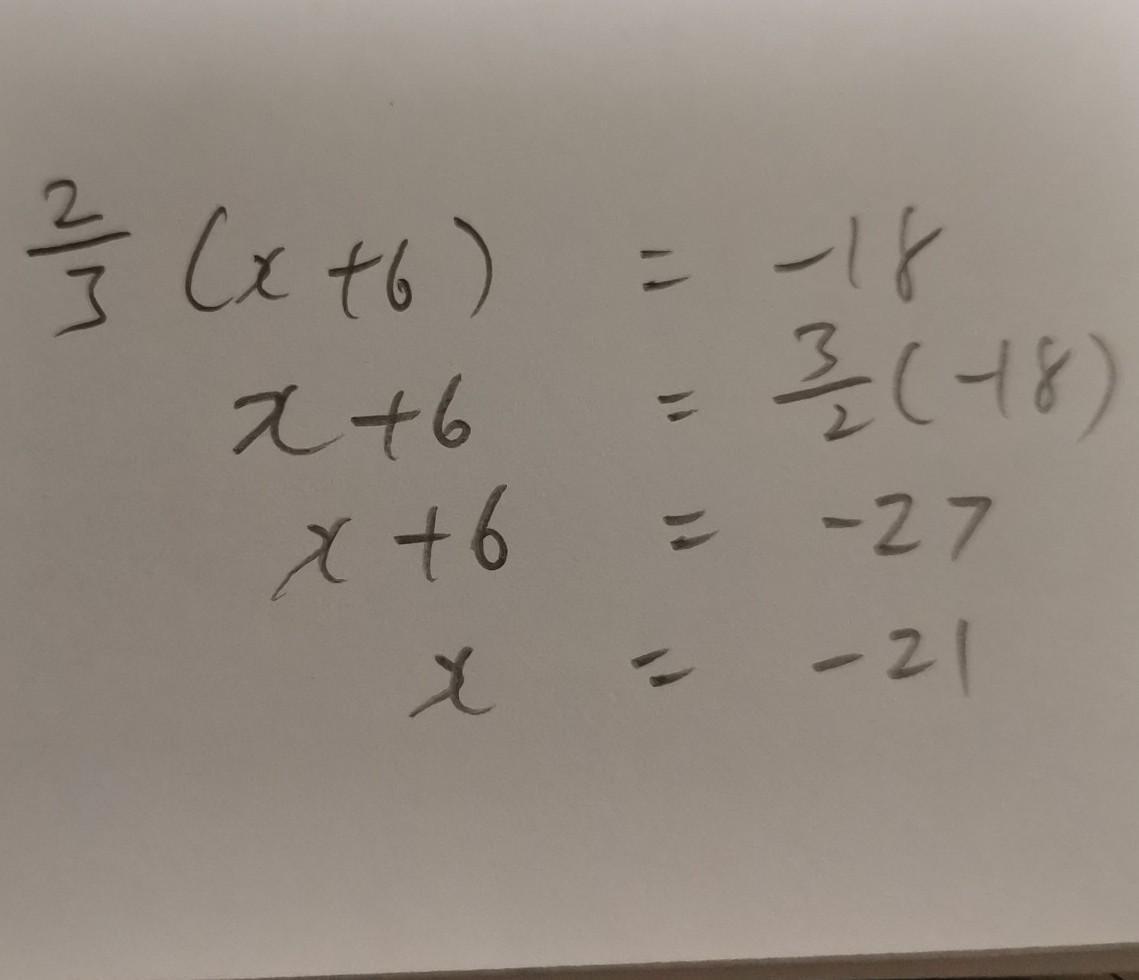 2/3 (x+6) = -18
x+6 = 3/2 (-18)
x+6 = -27
x = -21